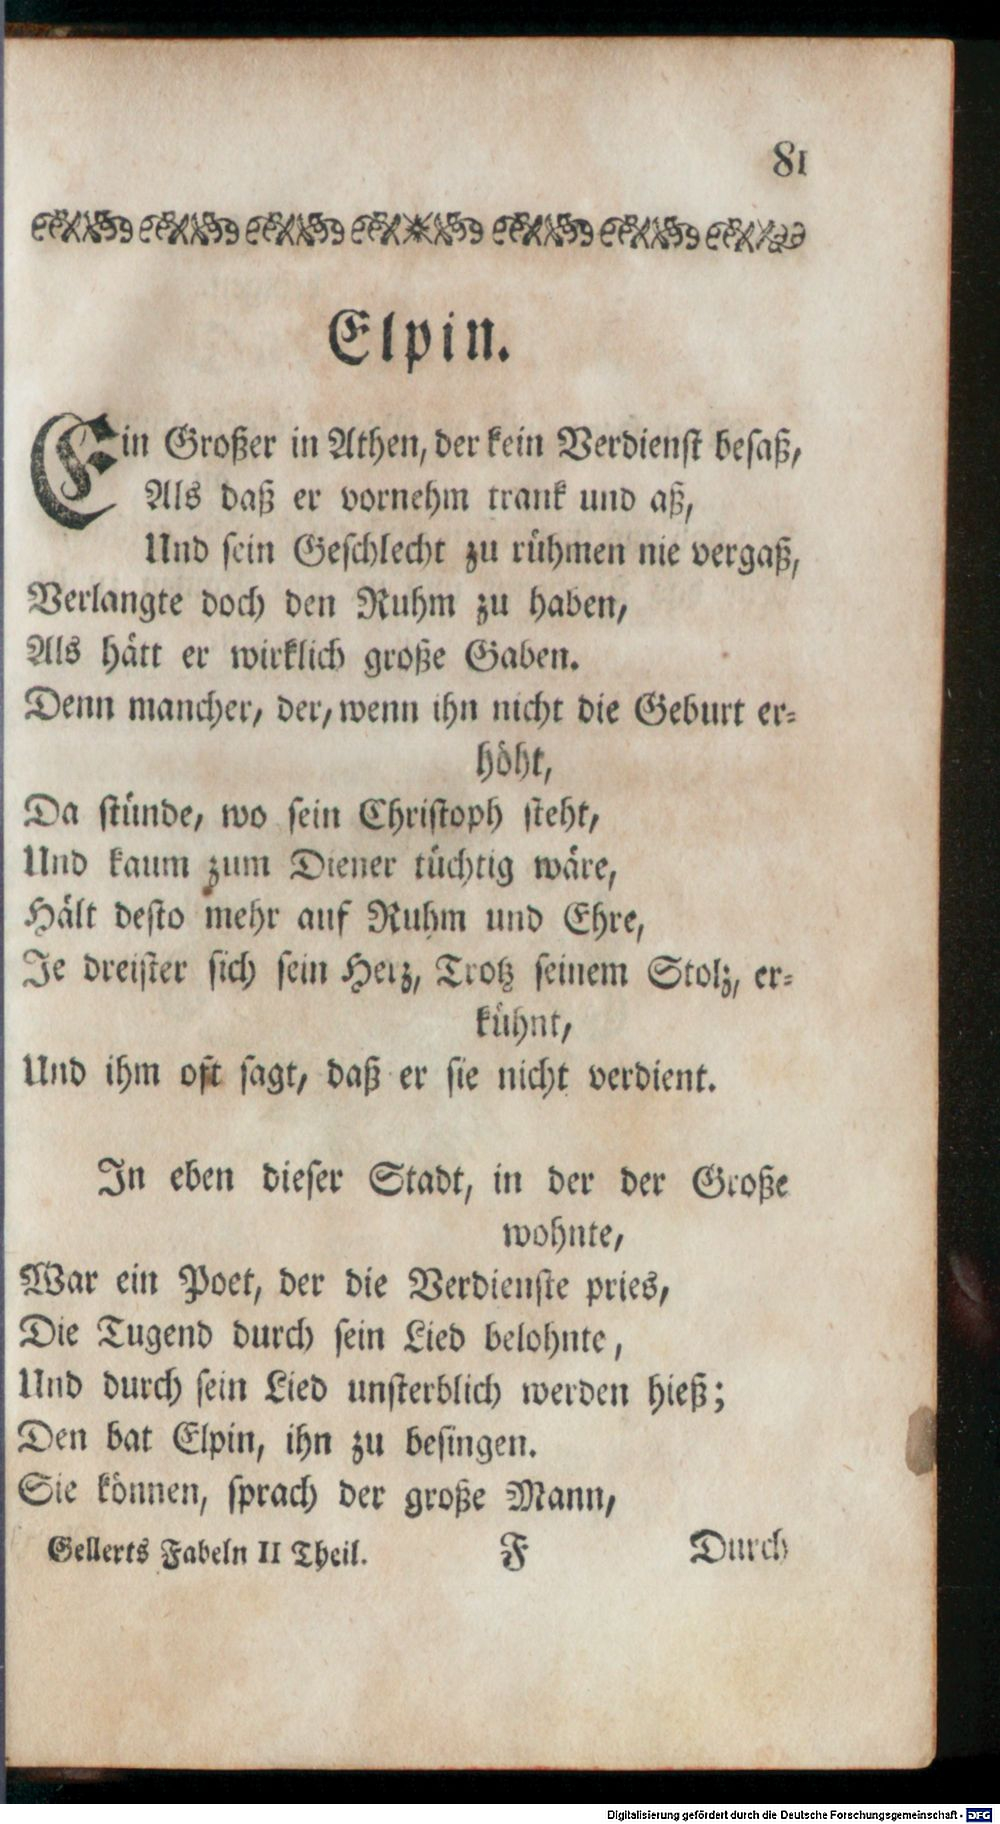 81
Elpin.
Ein Großer in Athen, der kein Verdienst besaß,
Als daß er vornehm trank und aß,
Und sein Geschlecht zu rühmen nie vergaß,
Verlangte doch den Ruhm zu haben,
Als hätt er wirklich große Gaben.
Denn mancher, der, wenn ihn nicht die Geburt er-
höht,
Da stünde, wo sein Christoph steht,
Und kaum zum Diener tüchtig wäre,
Hält desto mehr auf Ruhm und Ehre,
Je dreister sich sein Herz, Trotz seinem Stolz, er-
kühnt,
Und ihm oft sagt, daß er sie nicht verdient.
In eben dieser Stadt, in der der Große
wohnte,
War ein Poet, der die Verdienste pries,
Die Tugend durch sein Lied belohnte,
Und durch sein Lied unsterblich werden hieß;
Den bat Elpin, ihn zu besingen.
Sie können, sprach der große Mann,
Gellerts Fabeln II Theil. F Durch
Digitalisierung gefördert durch die Deutsche Forschungsgemeinschaft - DFG